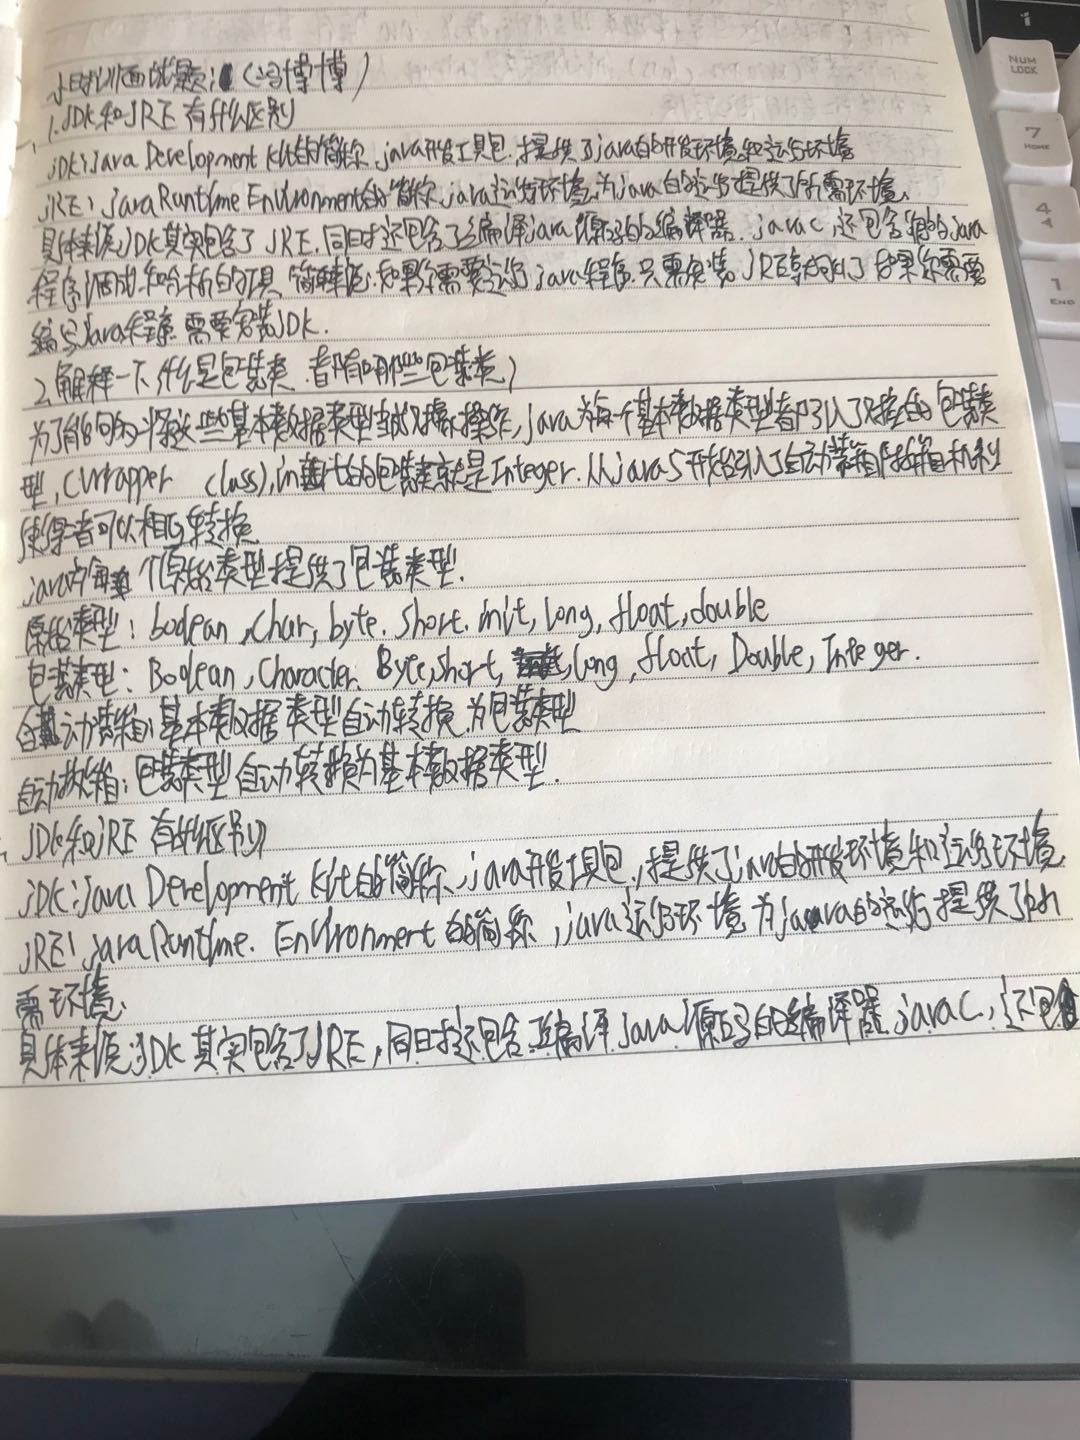 面试题:(冯博博)
1.JDK和JRE有什么区别
JDK:Java Development Kit的简称,java开发工具包.提供了java的开发环境和运行环境
JRE:java Runtime Environment的简称,java运行环境,为java的运行提供了所需环境.
具体来说JDK其实包含了JRE,同时还包含了编译java源码的编译器.javac,还包含很多java
程序调试和分析的工具 简单来说:如果你需要运行java程序.只需安装JRE就可以了 如果你需要
编写java程序.需要安装JDK.
2.解释一下什么是包装类.都有哪些包装类?
为了能够将这些基本数据类型当成对象操作,java为每个基本数据类型都引入了对应的包装类
型,(wrapper class),int的包装类就是Integer.从java5开始引入了自动装箱/拆箱机制
使得者可以相互转换
java为每 个原始类型提供了包装类型.
原始类型:boolean,char,byte.short.init,long,float,double
包装类型:Boolean,Character.Byte,short,long,float,Double,Integer.
自动装箱:基本数据类型自动转换为包装类型
自动拆箱:包装类型自动转换为基本数据类型.
JDK和JRE有什么区别
JDK:java Development Kit的简称,java开发工具包,提供了java的开发环境和运行环境
JRE:java Runtime.Environment的简称,java运行环境 为java的运行提供了所
需环境.
具体来说:JDK其实包含了JRE,同时还包含编译java源码的编译器javac,还包含